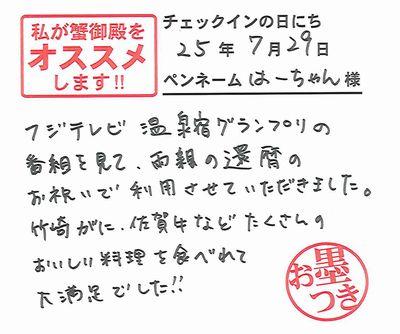 私が蟹御殿を
オススメ
します!!
チェックインの日にち
25年7月29日
ペンネーム はーちゃん 様
フジテレビ 温泉宿グランプリの
番組を見て、両親の還暦の
お祝いで利用させていただきました。
竹崎がに、佐賀牛などたくさんの
おいしい料理を食べれて
大満足でした!!
お墨つき